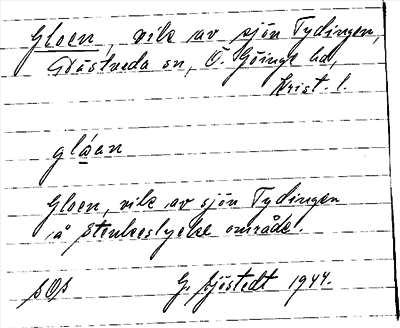 Gloen, vik av sjön Tydingen,
Gåastveda sn, Ö. Göinge hd,
Krist. l.
glåen
Gloen, vik av sjön Tydingen
å Stenkeslycke område.
sOs G. Sjöstedt 1944.